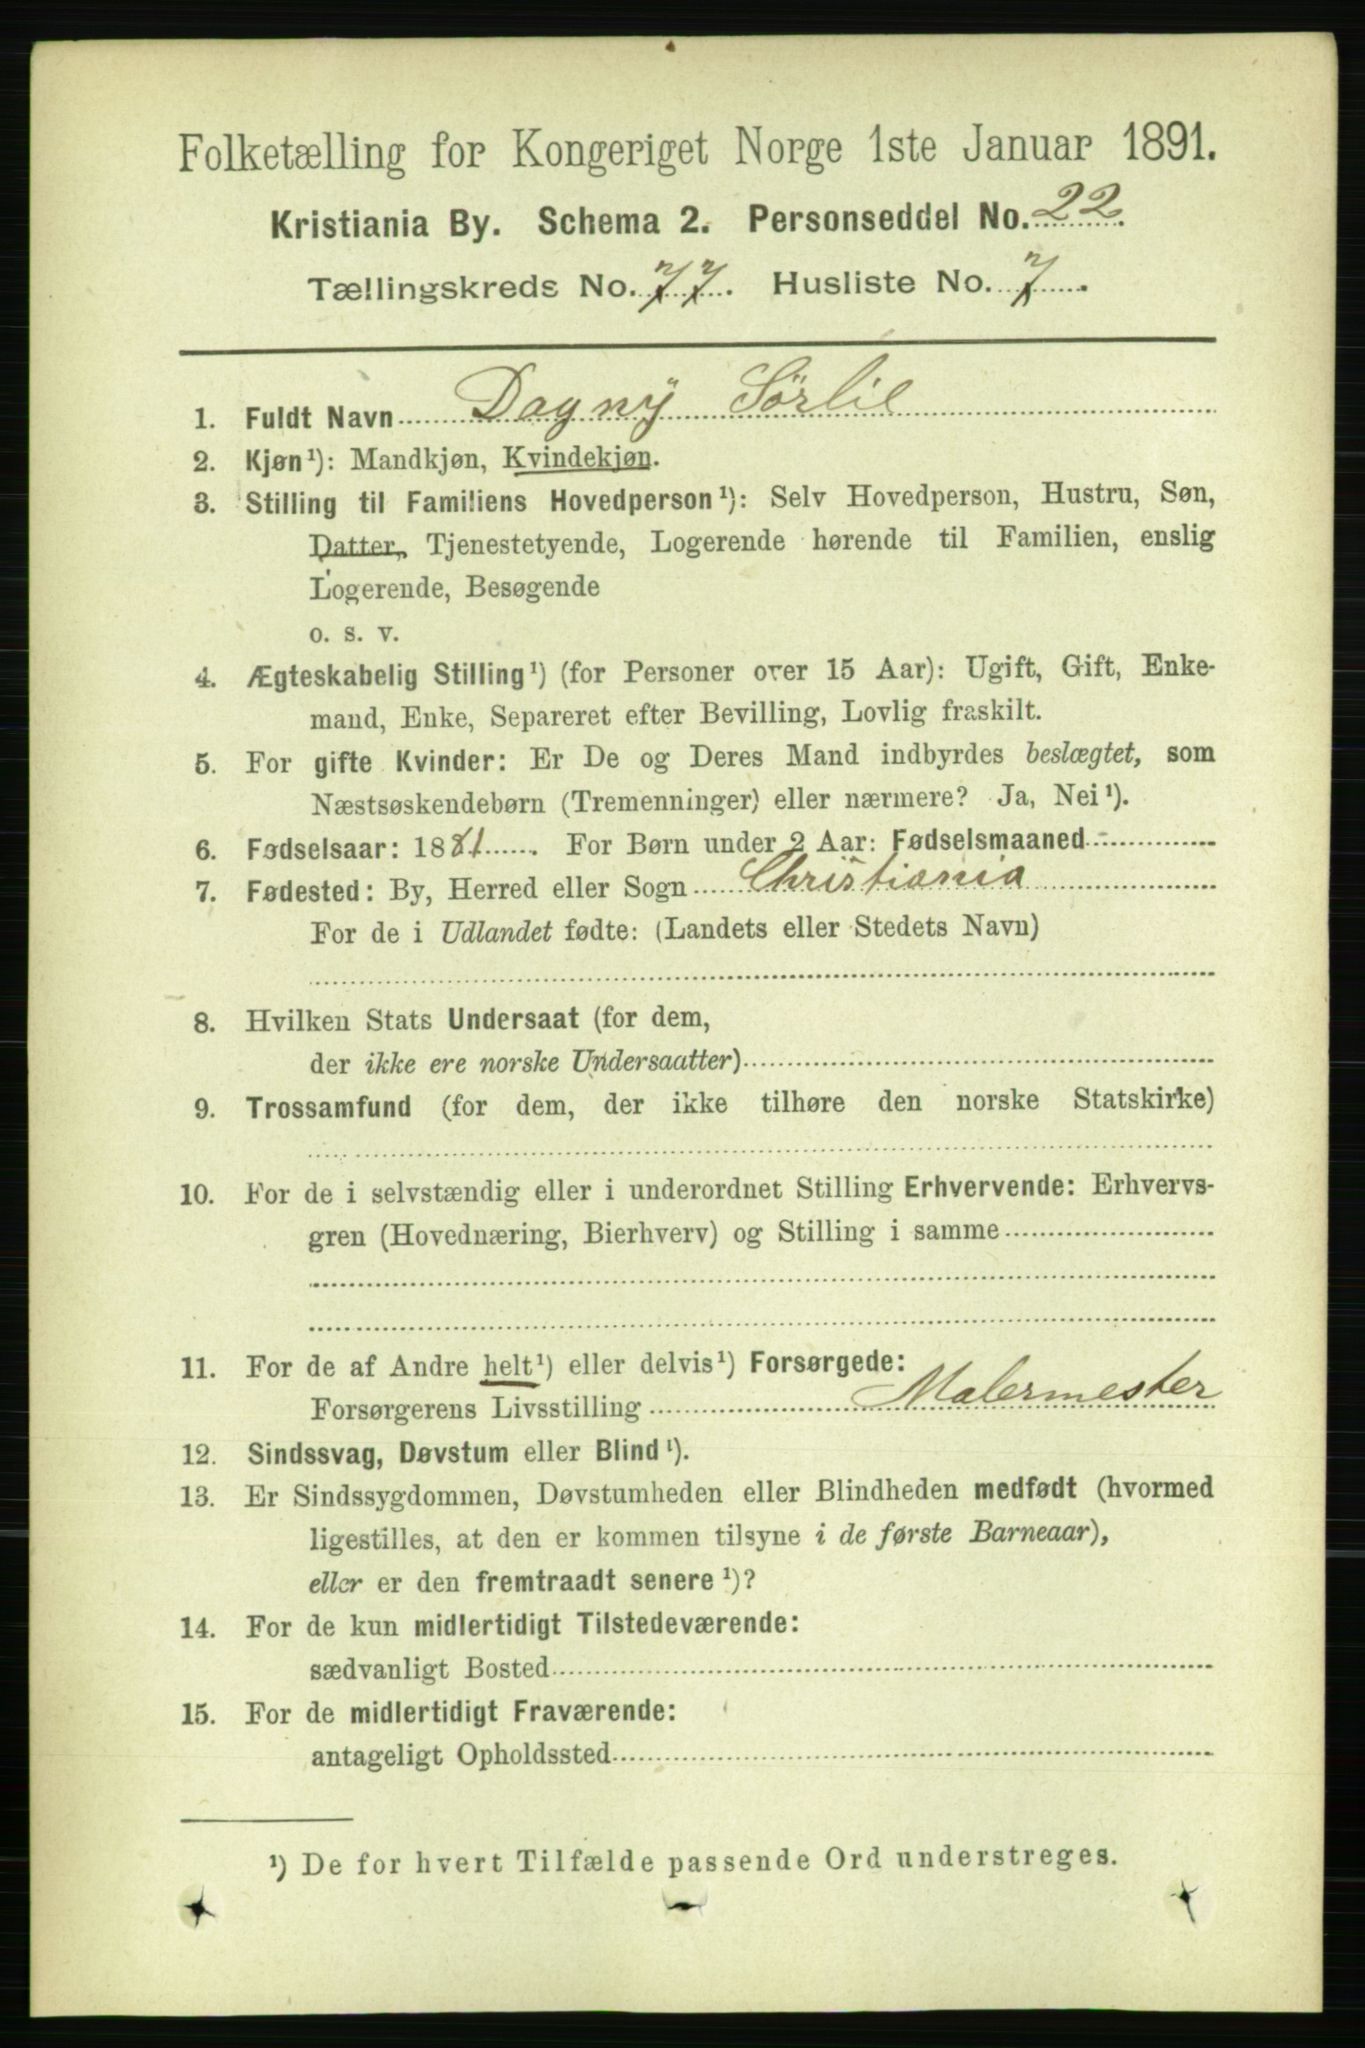 Folketælling for Kongeriget Norge 1ste Januar 1891.
Kristiania By. Schema 2. Personseddel No. 22.
Tællingskreds No. 77. Husliste No. 7.
1. Fuldt Navn Dagny Sörlie
2. Kjøn¹): Mandkjøn, Kvindekjøn.
3. Stilling til Familiens Hovedperson¹): Selv Hovedperson, Hustru, Søn,
Datter, Tjenestetyende, Logerende hørende til Familien, enslig
Logerende, Besøgende
o. s. v.
4. Ægteskabelig Stilling¹) (for Personer over 15 Aar): Ugift, Gift, Enke-
mand, Enke, Separeret efter Bevilling, Lovlig fraskilt.
5. For gifte Kvinder: Er De og Deres Mand indbyrdes beslægtet, som
Næstsøskendebørn (Tremenninger) eller nærmere? Ja, Nei¹).
6. Fødselsaar: 1881. For Børn under 2 Aar: Fødselsmaaned
7. Fødested: By, Herred eller Sogn Christiania
For de i Udlandet fødte: (Landets eller Stedets Navn)
8. Hvilken Stats Undersaat (for dem,
der ikke ere norske Undersaatter)
9. Trossamfund (for dem, der ikke tilhøre den norske Statskirke)
10. For de i selvstændig eller i underordnet Stilling Erhvervende: Erhvervs-
gren (Hovednæring, Bierhverv) og Stilling i samme
11. For de af Andre helt¹) eller delvis¹) Forsørgede:
Forsørgerens Livsstilling Malermester
12. Sindssvag, Døvstum eller Blind¹).
13. Er Sindssygdommen, Døvstumheden eller Blindheden medfødt (hvormed
ligestilles, at den er kommen tilsyne i de første Barneaar),
eller er den fremtraadt senere¹)?
14. For de kun midlertidigt Tilstedeværende:
sædvanligt Bosted
15. For de midlertidigt Fraværende:
antageligt Opholdssted
¹) De for hvert Tilfælde passende Ord understreges.